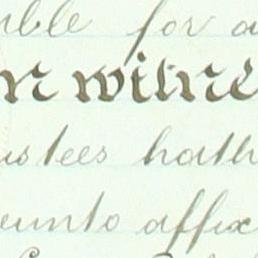 ble for a
n witne
ustees hath
eunto affix